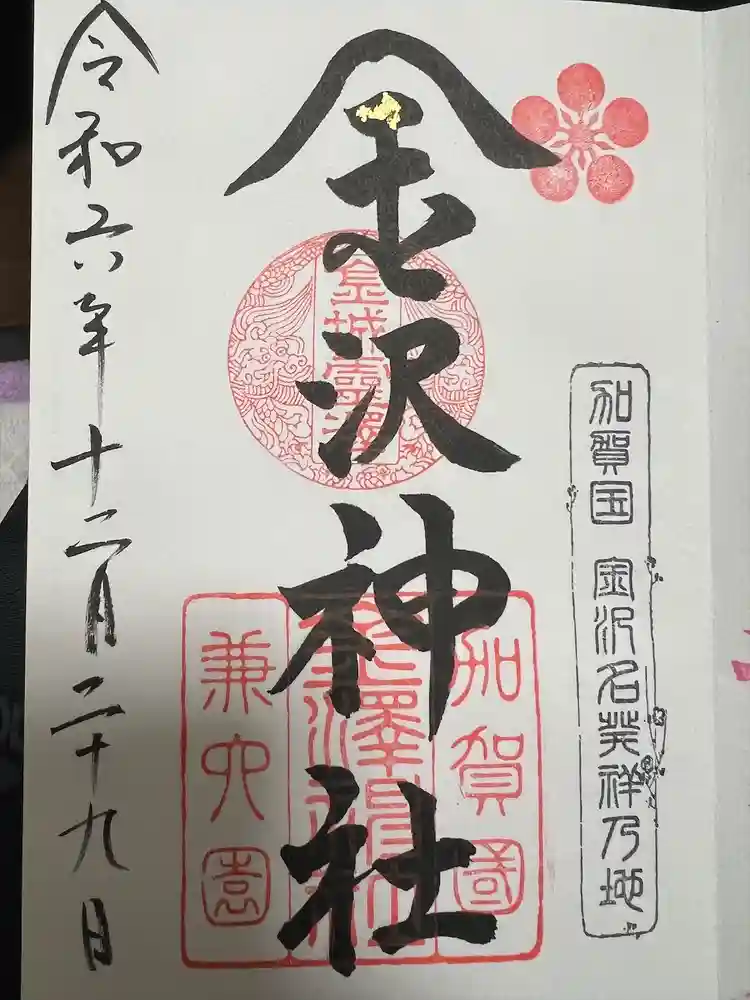 加賀国 金沢名発祥乃地
金沢神社
金城霊澤
加賀國
金澤神社
兼六園
令和六年十二月二十九日